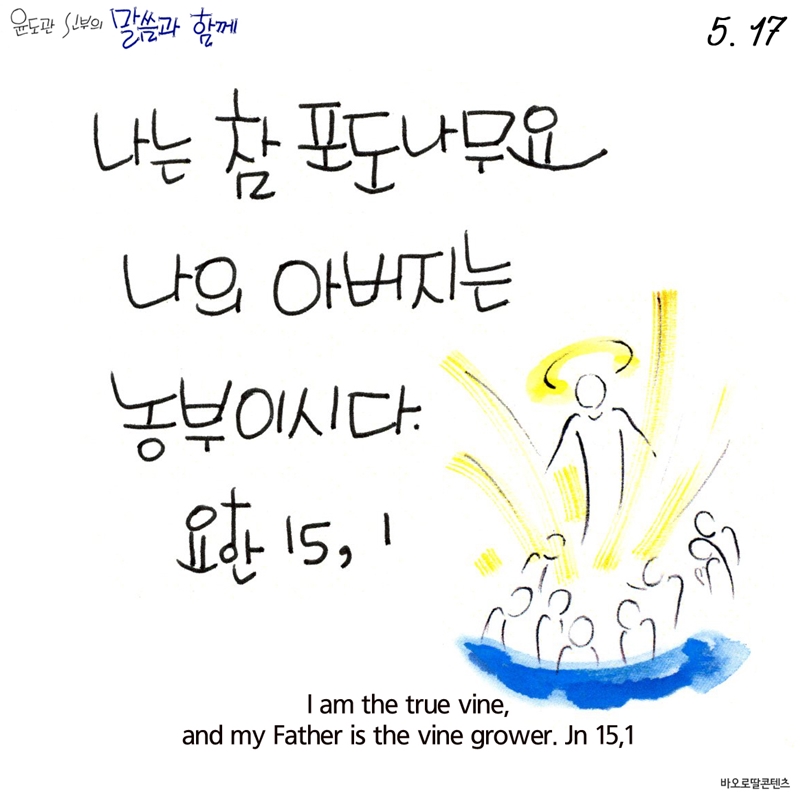 윤도관 신부의 말씀과 함께
5. 17
나는 참 포도나무요
나의 아버지는
농부이시다.
요한 15, 1
I am the true vine,
and my Father is the vine grower. Jn 15,1
바오로딸콘텐츠